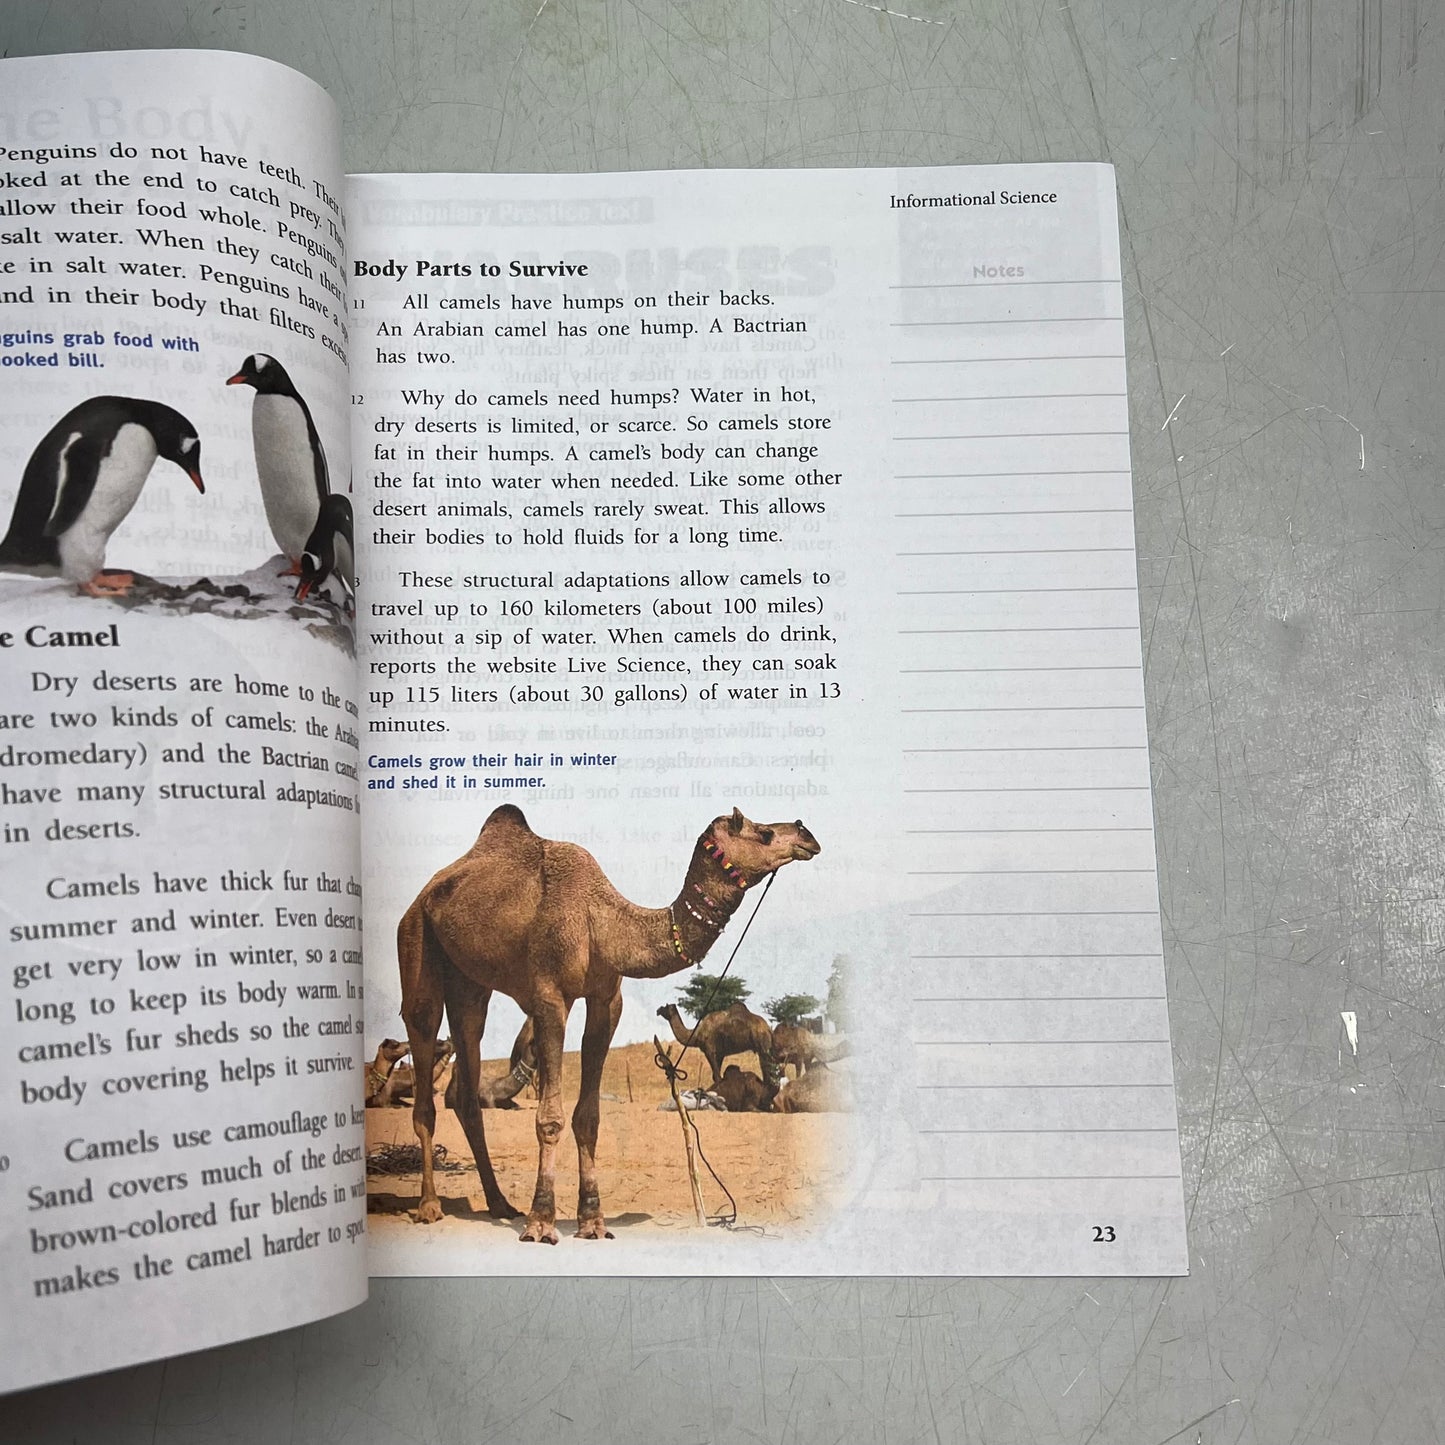 Penguins do not have teeth. Their
at the end to catch prey. They
their food whole. Penguins
salt water. When they catch their
in salt water. Penguins have a
in their body that filters excess
grab food with
bill.
Camel
Dry deserts are home to the
are two kinds of camels: the
dromedary) and the Bactrian
have many structural adaptations
in deserts.
Camels have thick fur that
summer and winter. Even desert
get very low in winter, so a
long to keep its body warm. In
camel's fur sheds so the camel
body covering helps it survive.
Camels use camouflage to
Sand covers much of the desert.
brown-colored fur blends in
makes the camel harder to
Informational Science
Notes
Body Parts to Survive
11 All camels have humps on their backs.
An Arabian camel has one hump. A Bactrian
has two.
12 Why do camels need humps? Water in hot,
dry deserts is limited, or scarce. So camels store
fat in their humps. A camel's body can change
the fat into water when needed. Like some other
desert animals, camels rarely sweat. This allows
their bodies to hold fluids for a long time.
3 These structural adaptations allow camels to
travel up to 160 kilometers (about 100 miles)
without a sip of water. When camels do drink,
reports the website Live Science, they can soak
up 115 liters (about 30 gallons) of water in 13
minutes.
Camels grow their hair in winter
and shed it in summer.
23